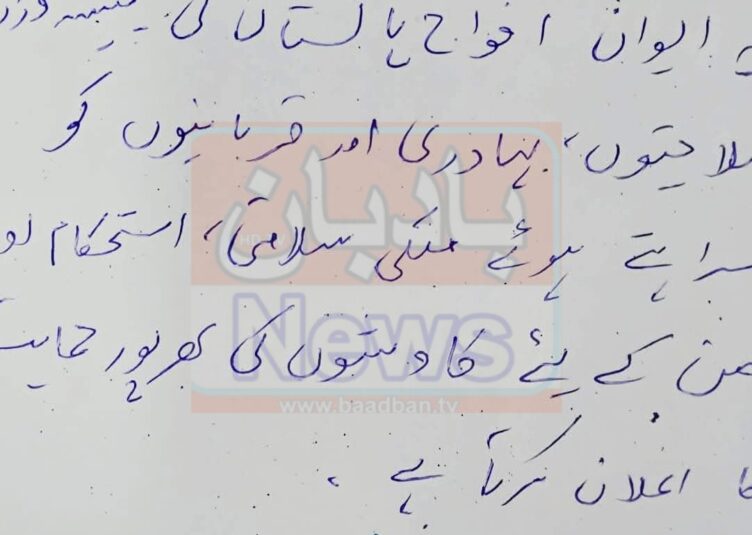 یہ ایوان افواج پاکستان کی پیشہ ورانہ
صلاحیتوں، بہادری اور قربانیوں کو
سراہتے ہوئے ملکی سلامتی، استحکام اور
امن کے لئے کاوشوں کی بھرپور حمایت
کا اعلان کرتا ہے ۔
بادبان
HD TV
News
www.baadban.tv